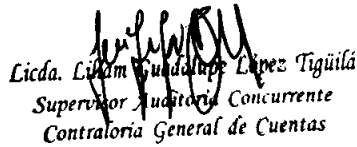 Licda. Liliam Guadalupe López Tigüilá
Supervisor Auditoria Concurrente
Contraloría General de Cuentas